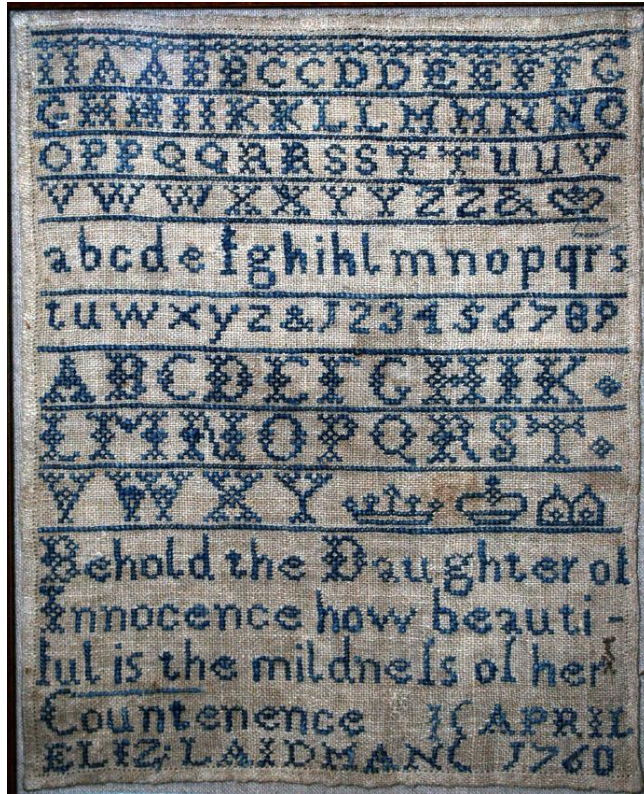 A A B B C C D D E E F F G
G H H I I K K L L M M N N O
O P P Q Q R R S S T T U U V
V W W X X Y Y Z Z &
a b c d e f g h i k l m n o p q r s
t u w x y z & 1 2 3 4 5 6 7 8 9
A B C D E F G H I K
L M N O P Q R S T
V W X Y
Behold the Daughter of
Innocence how beauti -
ful is the mildneſs of her
Countenence APRIL
ELIZ: LAIDMAN 1760